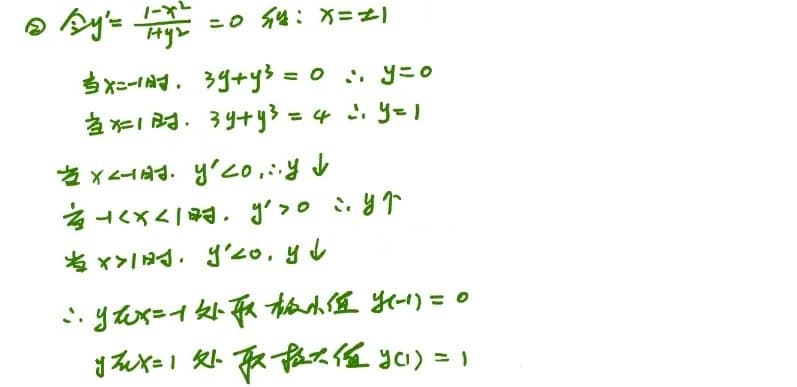 ② 令y'= \frac{1-x²}{1+y²} = 0 得: x=±1
当x=-1时. 3y+y³ = 0 ∴ y=0
当x=1时. 3y+y³ = 4 ∴ y=1
当x<-1时. y'<0, ∴y↓
当-1<x<1时. y'>0 ∴y↑
当x>1时. y'<0. y↓
∴ y在x=-1处取极小值 y(-1) = 0
y在x=1处取极大值 y(1) = 1